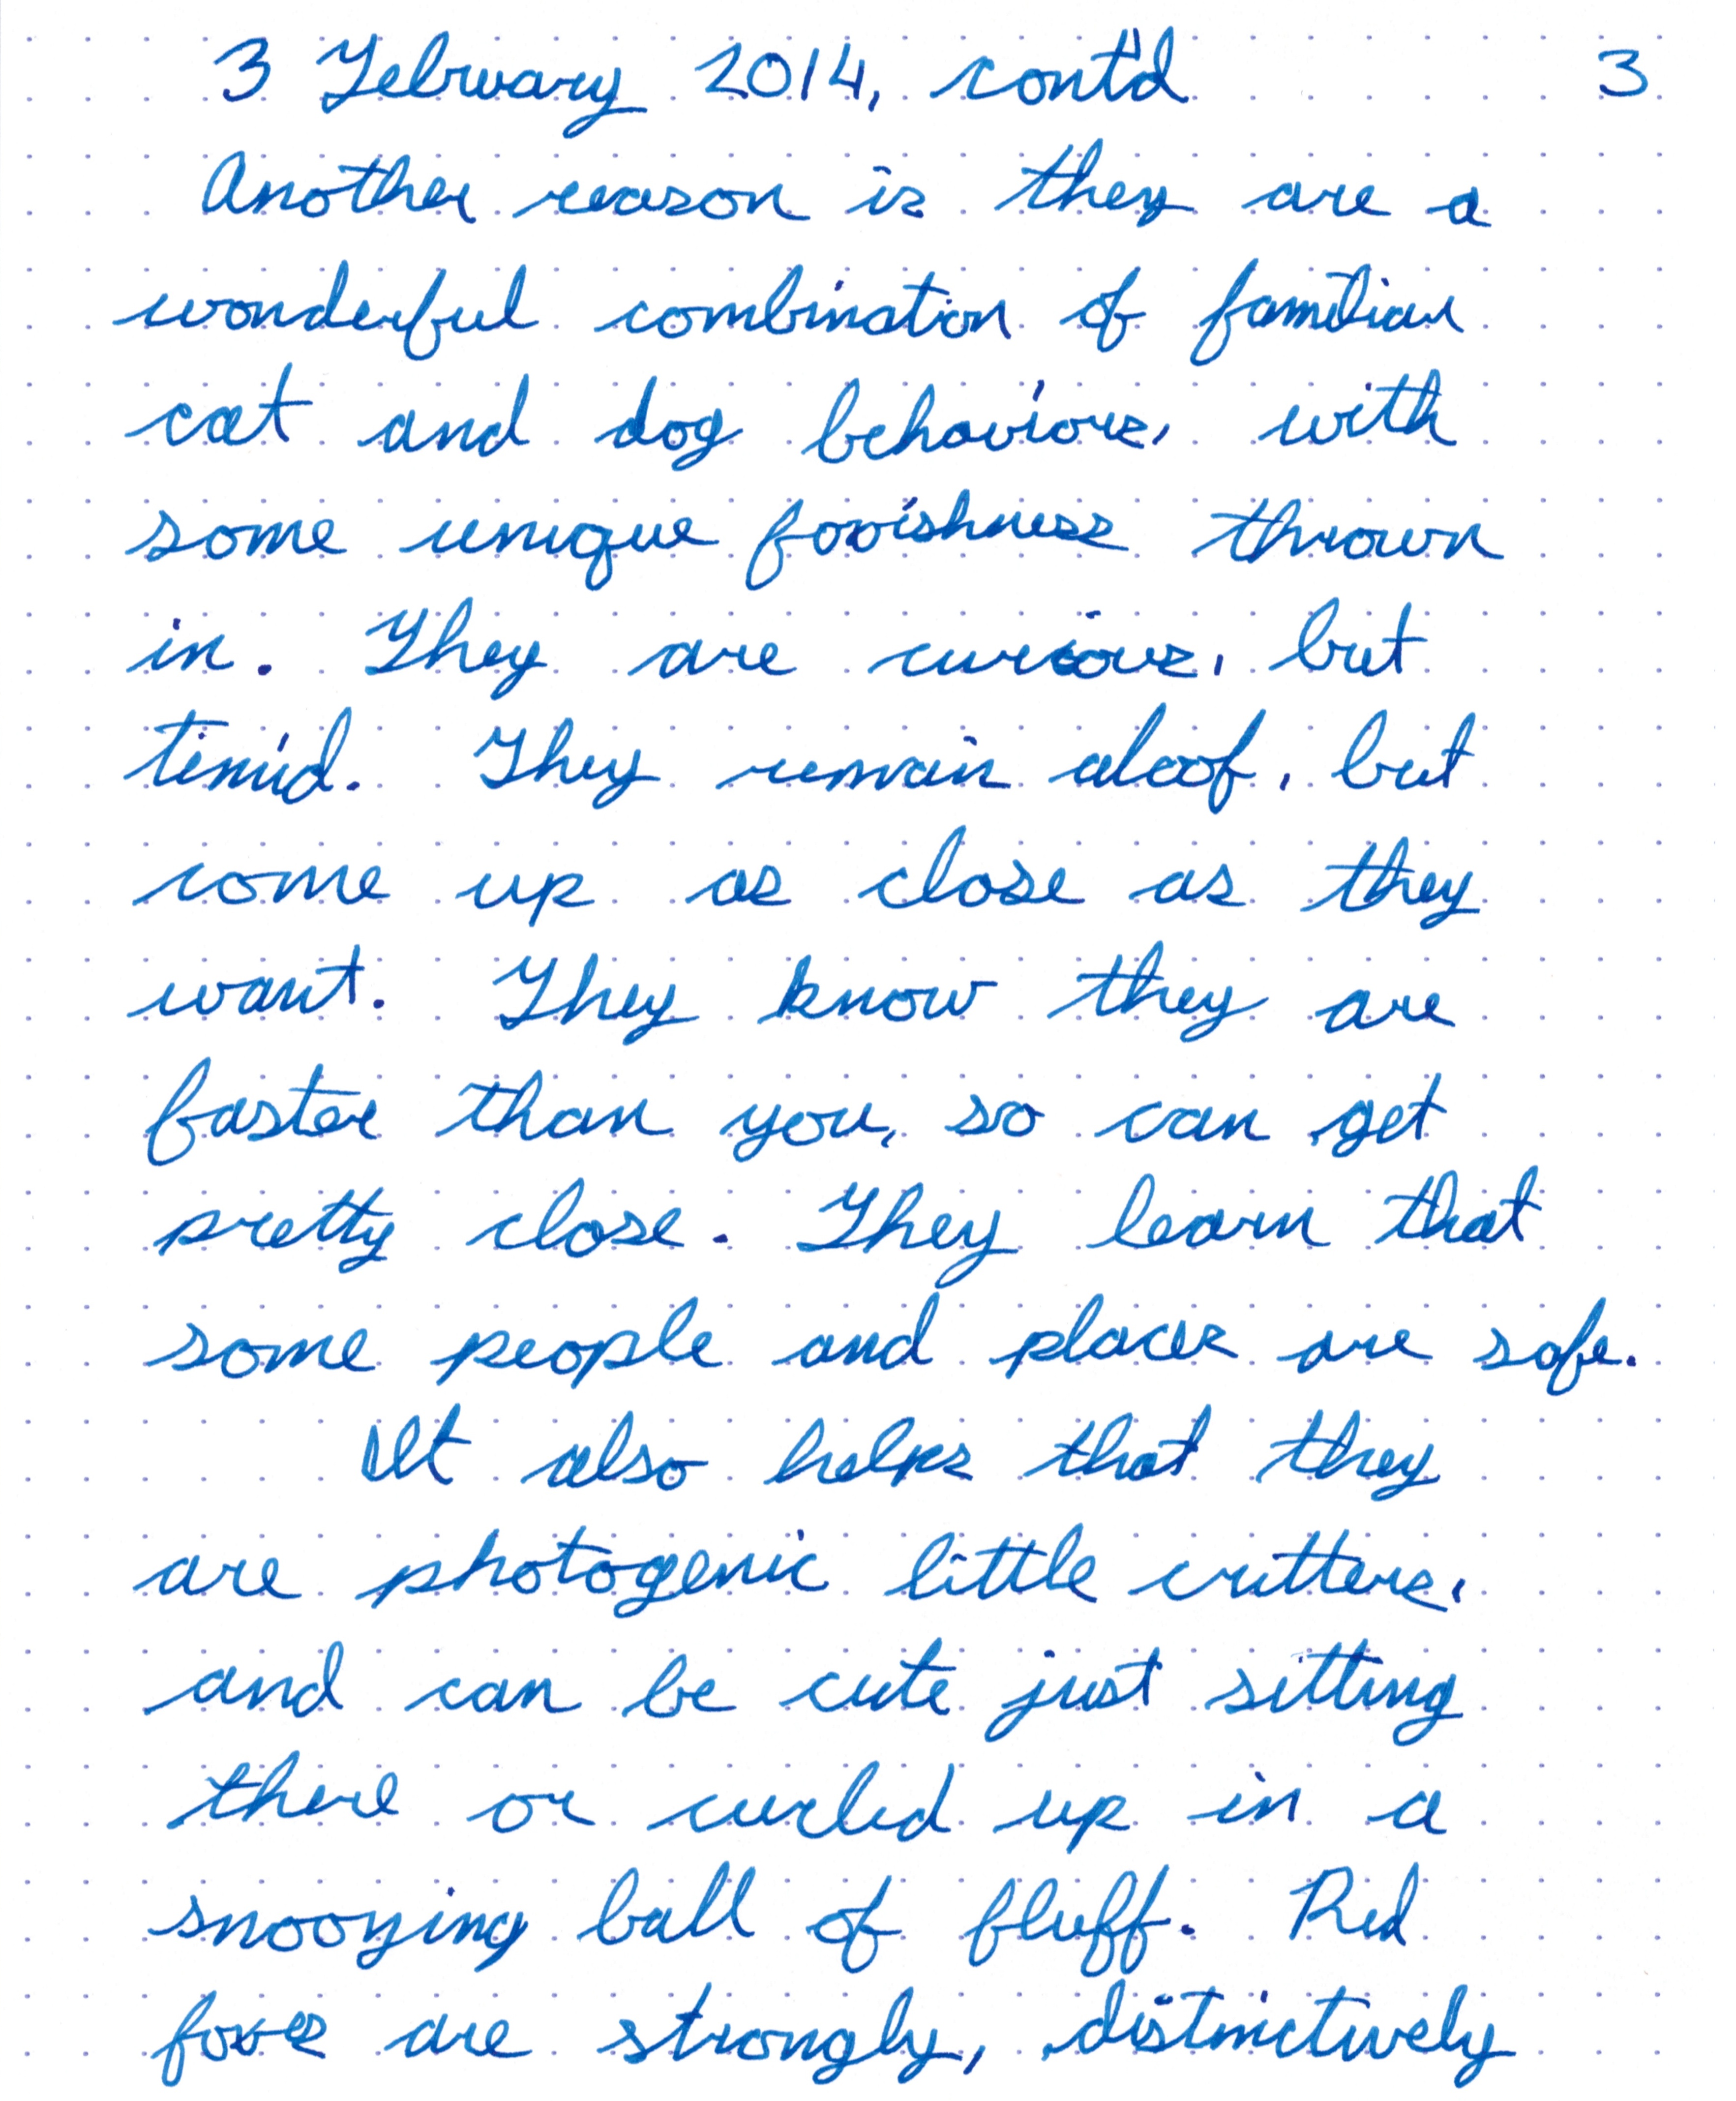 3 February 2014, cont'd 3
Another reason is they are a
wonderful combination of familiar
cat and dog behaviors, with
some unique foxishness thrown
in. They are curious, but
timid. They remain aloof, but
come up as close as they
want. They know they are
faster than you, so can get
pretty close. They learn that
some people and places are safe.
It also helps that they
are photogenic little critters,
and can be cute just sitting
there or curled up in a
snoozing ball of fluff. Red
foxes are strongly, distinctively